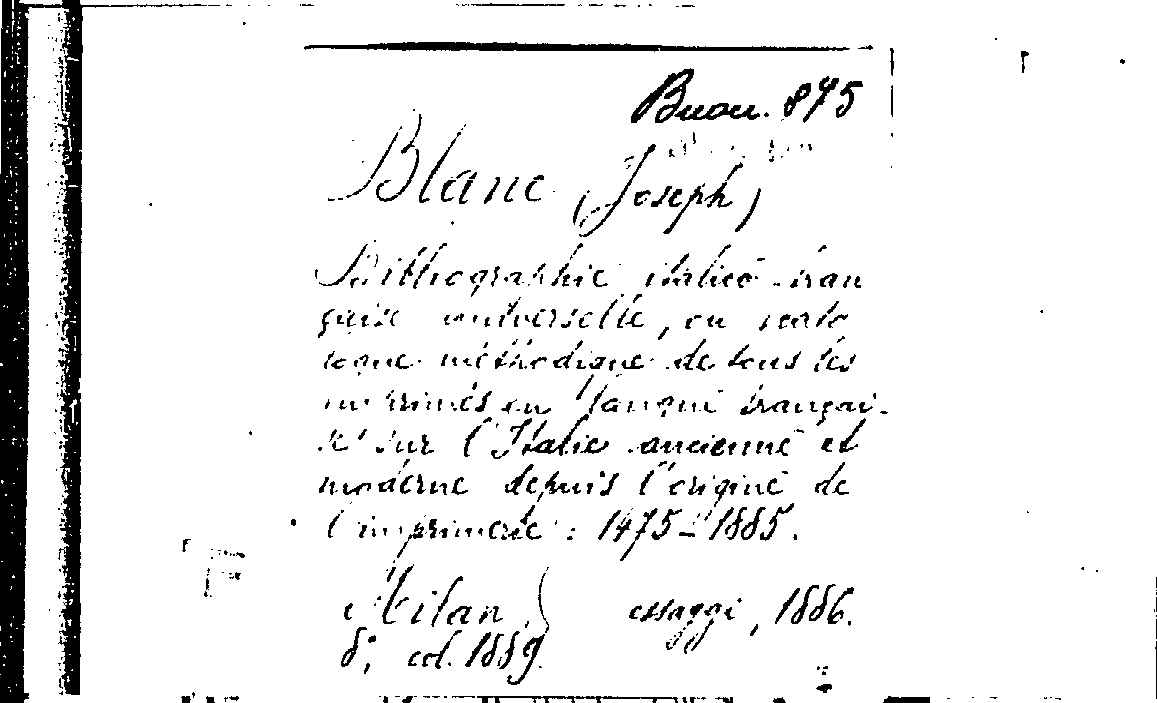 Buon. 895
Blanc (Joseph)
Bibliographie italico-fran
çaise universelle, ou cata
logue méthodique de tous les
imprimés en langue françai-
se sur l'Italie ancienne et
moderne depuis l'origine de
l'imprimerie : 1475-1885.
Milan, essaggi, 1886.
8°, col. 1889.